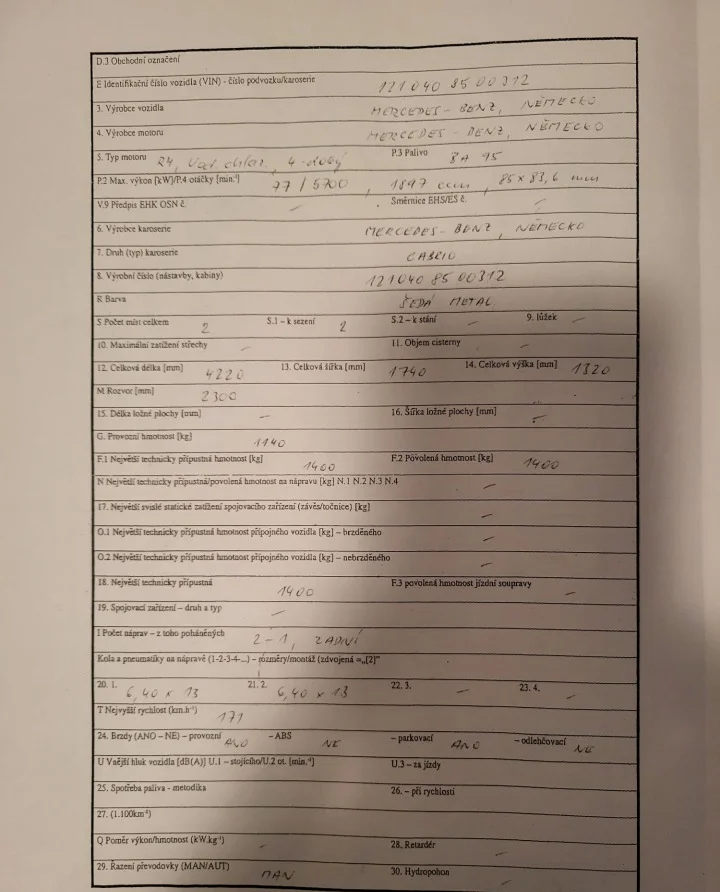 D.3 Obchodní označení
E Identifikační číslo vozidla (VIN) - číslo podvozku/karoserie 121 040 85 00312
3. Výrobce vozidla MERCEDES - BENZ, NĚMECKO
4. Výrobce motoru MERCEDES - BENZ, NĚMECKO
5. Typ motoru R4, vod. chlaz., 4-dobý P.3 Palivo BA 95
P.2 Max. výkon [kW]/P.4 otáčky [min.⁻¹] 77 / 5700, 1897 ccm, 85 x 83,6 mm
V.9 Předpis EHK OSN č. – Směrnice EHS/ES č. –
6. Výrobce karoserie MERCEDES - BENZ, NĚMECKO
7. Druh (typ) karoserie CABRIO
8. Výrobní číslo (nástavby, kabiny) 121 040 85 00312
R Barva ŠEDÁ METAL
S Počet míst celkem 2 S.1 – k sezení 2 S.2 – k stání – 9. lůžek –
10. Maximální zatížení střechy – 11. Objem cisterny –
12. Celková délka [mm] 4220 13. Celková šířka [mm] 1740 14. Celková výška [mm] 1320
M Rozvor [mm] 2300
15. Délka ložné plochy [mm] – 16. Šířka ložné plochy [mm] –
G. Provozní hmotnost [kg] 1140
F.1 Největší technicky přípustná hmotnost [kg] 1400 F.2 Povolená hmotnost [kg] 1400
N Největší technicky přípustná/povolená hmotnost na nápravu [kg] N.1 N.2 N.3 N.4 –
17. Největší svislé statické zatížení spojovacího zařízení (závěs/točnice) [kg] –
O.1 Největší technicky přípustná hmotnost přípojného vozidla [kg] – brzděného –
O.2 Největší technicky přípustná hmotnost přípojného vozidla [kg] – nebrzděného –
18. Největší technicky přípustná 1400 F.3 povolená hmotnost jízdní soupravy –
19. Spojovací zařízení – druh a typ –
I Počet náprav – z toho poháněných 2 – 1, ZADNÍ
Kola a pneumatiky na nápravě (1-2-3-4-...) – rozměry/montáž (zdvojená =„[2]“
20. 1. 6,40 x 13 21. 2. 6,40 x 13 22. 3. – 23. 4. –
T Nejvyšší rychlost (km.h⁻¹) 171
24. Brzdy (ANO – NE) – provozní ANO – ABS NE – parkovací ANO – odlehčovací NE
U Vnější hluk vozidla [dB(A)] U.1 – stojícího/U.2 ot. [min.⁻¹] U.3 – za jízdy
25. Spotřeba paliva - metodika 26. – při rychlosti
27. (1.100km⁻¹)
Q Poměr výkon/hmotnost (kW.kg⁻¹) – 28. Retardér –
29. Řazení převodovky (MAN/AUT) MAN 30. Hydropohon –